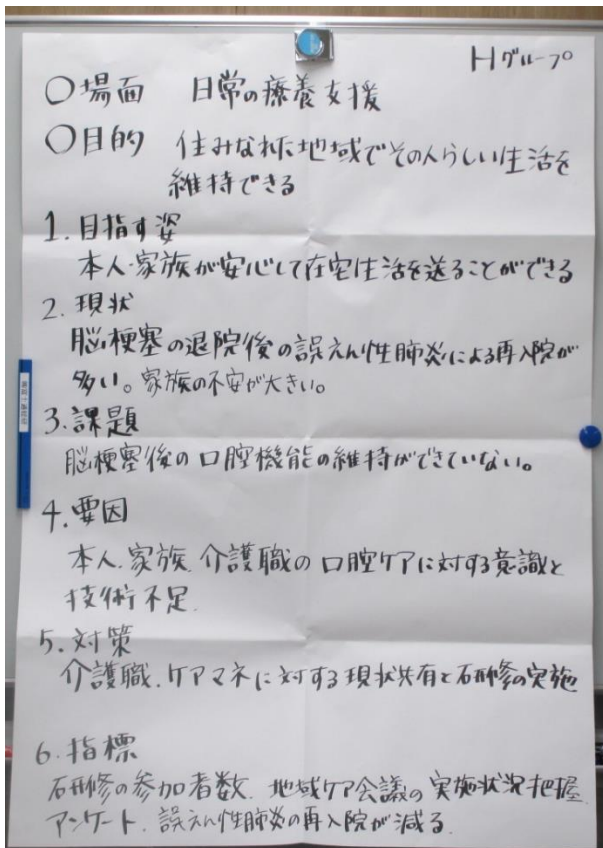 Hグループ
○場面 日常の療養支援
○目的 住みなれた地域でその人らしい生活を
維持できる
1.目指す姿
本人・家族が安心して在宅生活を送ることができる
2.現状
脳梗塞の退院後の誤えん性肺炎による再入院が
多い。家族の不安が大きい。
3.課題
脳梗塞後の口腔機能の維持ができていない。
4.要因
本人、家族、介護職の口腔ケアに対する意識と
技術不足.
5.対策
介護職、ケアマネに対する現状共有と研修の実施
6.指標
研修の参加者数、地域ケア会議の実施状況把握
アンケート、誤えん性肺炎の再入院が減る.